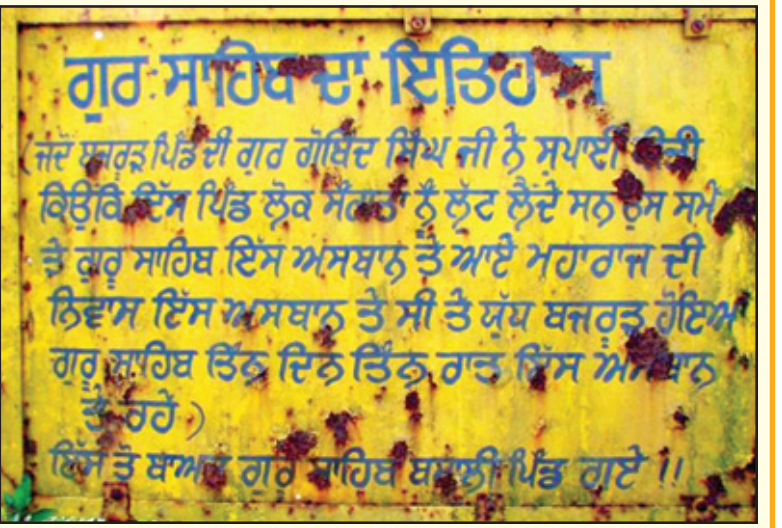 ਗੁਰ ਸਾਹਿਬ ਦਾ ਇਤਿਹਾਸ
(ਜਦੋ ਬਜਰੁੜ ਪਿੰਡ ਦੀ ਗੁਰ ਗੋਬਿੰਦ ਸਿੰਘ ਜੀ ਨੇ ਸੁਪਾਈ ਕੀਤੀ
ਕਿਉਂਕਿ ਇੱਸ ਪਿੰਡ ਲੋਕ ਸੰਗਤਾਂ ਨੂੰ ਲੁੱਟ ਲੈਂਦੇ ਸਨ ਉਸ ਸਮੇਂ
ਤੇ ਗੁਰੂ ਸਾਹਿਬ ਇੱਸ ਅਸਥਾਨ ਤੇ ਆਏ ਮਹਾਰਾਜ ਦੀ
ਨਿਵਾਸ ਇੱਸ ਅਸਥਾਨ ਤੇ ਸੀ ਤੇ ਯੁੱਧ ਬਜਰੁੜ ਹੋਇਆ
ਗੁਰੂ ਸਾਹਿਬ ਤਿੰਨ ਦਿਨ ਤਿੰਨ ਰਾਤ ਇੱਸ ਅਸਥਾਨ
ਤੇ ਰਹੇ )
ਇੱਸ ਤੋ ਬਾਅਦ ਗੁਰੂ ਸਾਹਿਬ ਬਸਾਲੀ ਪਿੰਡ ਗਏ !!